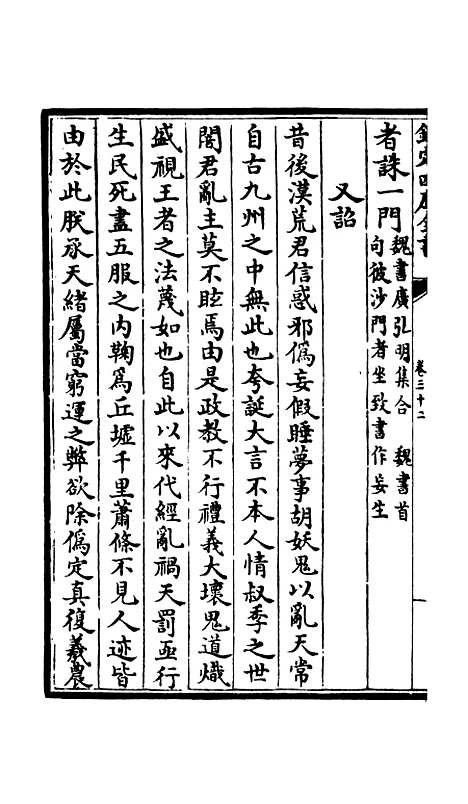 欽定四庫全書
卷三十二
者誅一門
魏書廣弘明集合　魏書首
句彼沙門者坐致書作妄生
又詔
昔後漢荒君信惑邪偽妄假睡夢事胡妖鬼以亂天常
自古九州之中無此也夸誕大言不本人情叔季之世
闇君亂主莫不眩焉由是政教不行禮義大壞鬼道熾
盛視王者之法蔑如也自此以來代經亂禍天罰亟行
生民死盡五服之內鞠為丘墟千里蕭條不見人迹皆
由於此朕承天緒屬當窮運之弊欲除偽定真復羲農